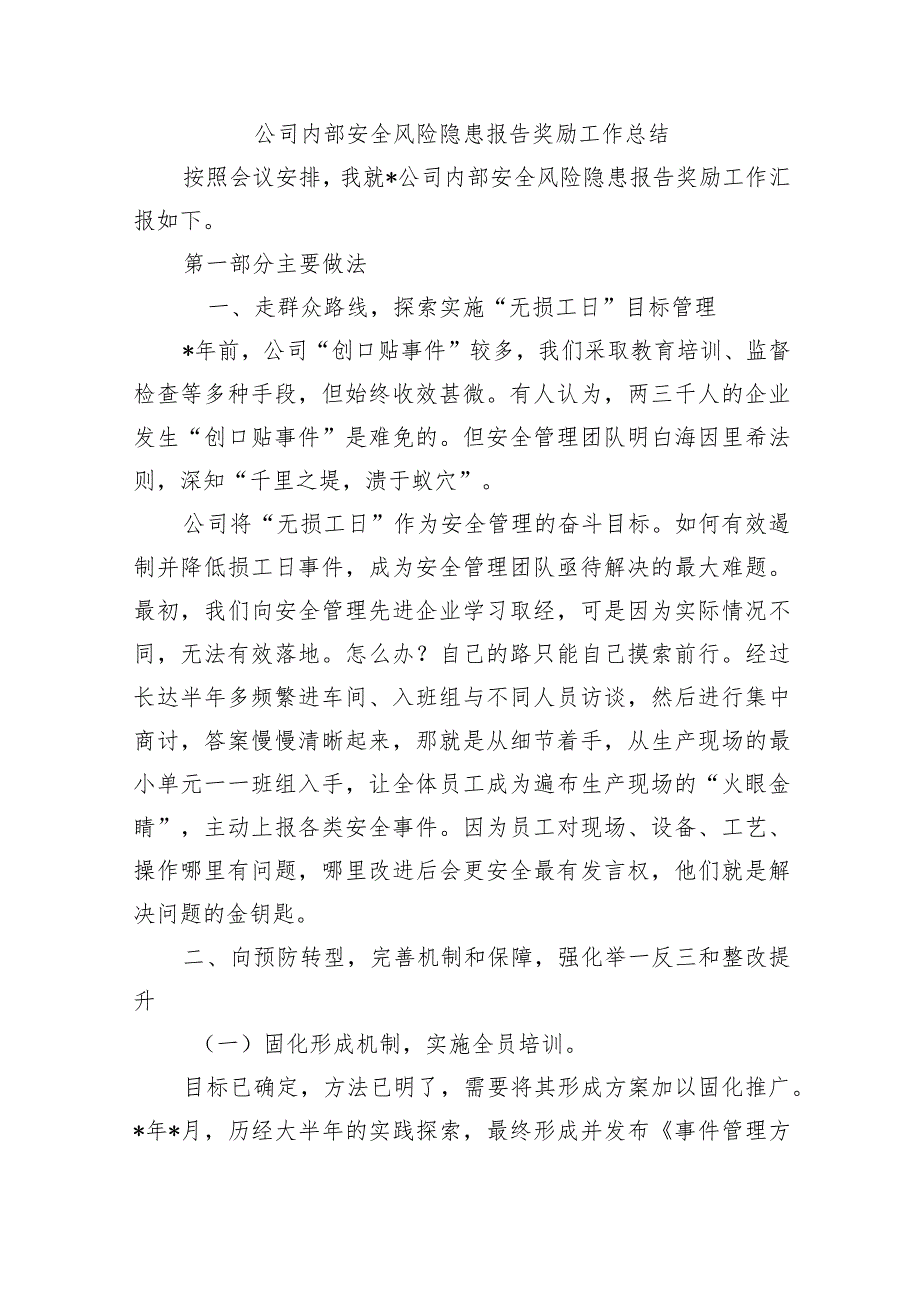 公司内部安全风险隐患报告奖励工作总结
按照会议安排，我就*公司内部安全风险隐患报告奖励工作汇
报如下。
第一部分主要做法
一、走群众路线，探索实施“无损工日”目标管理
*年前，公司“创口贴事件”较多，我们采取教育培训、监督
检查等多种手段，但始终收效甚微。有人认为，两三千人的企业
发生“创口贴事件”是难免的。但安全管理团队明白海因里希法
则，深知“千里之堤，溃于蚁穴”。
公司将“无损工日”作为安全管理的奋斗目标。如何有效遏
制并降低损工日事件，成为安全管理团队亟待解决的最大难题。
最初，我们向安全管理先进企业学习取经，可是因为实际情况不
同，无法有效落地。怎么办？自己的路只能自己摸索前行。经过
长达半年多频繁进车间、入班组与不同人员访谈，然后进行集中
商讨，答案慢慢清晰起来，那就是从细节着手，从生产现场的最
小单元一一班组入手，让全体员工成为遍布生产现场的“火眼金
睛”，主动上报各类安全事件。因为员工对现场、设备、工艺、
操作哪里有问题，哪里改进后会更安全最有发言权，他们就是解
决问题的金钥匙。
二、向预防转型，完善机制和保障，强化举一反三和整改提
升
（一）固化形成机制，实施全员培训。
目标已确定，方法已明了，需要将其形成方案加以固化推广。
*年*月，历经大半年的实践探索，最终形成并发布《事件管理方